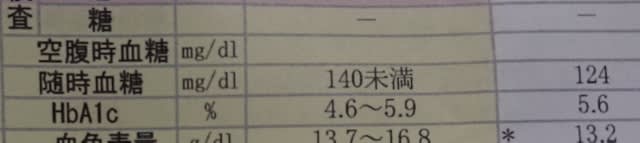 査 糖 － －
空腹時血糖 mg/dl
随時血糖 mg/dl 140未満 124
HbA1c % 4.6～5.9 5.6
血色素量 g/dl 13.7～16.8 * 13.2